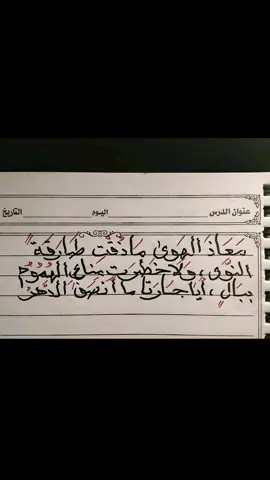 عنوان الدرس اليوم التاريخ
مَعَاذَ الهَوى مَا ذُقْتِ طَارِقَةَ
النَّوَى ، وَلَا خَطَرَت مِنكِ الهُمُومُ
بِبَالِ ، أَيا جَارَتا ما أَنصَفَ الدَّهرُ